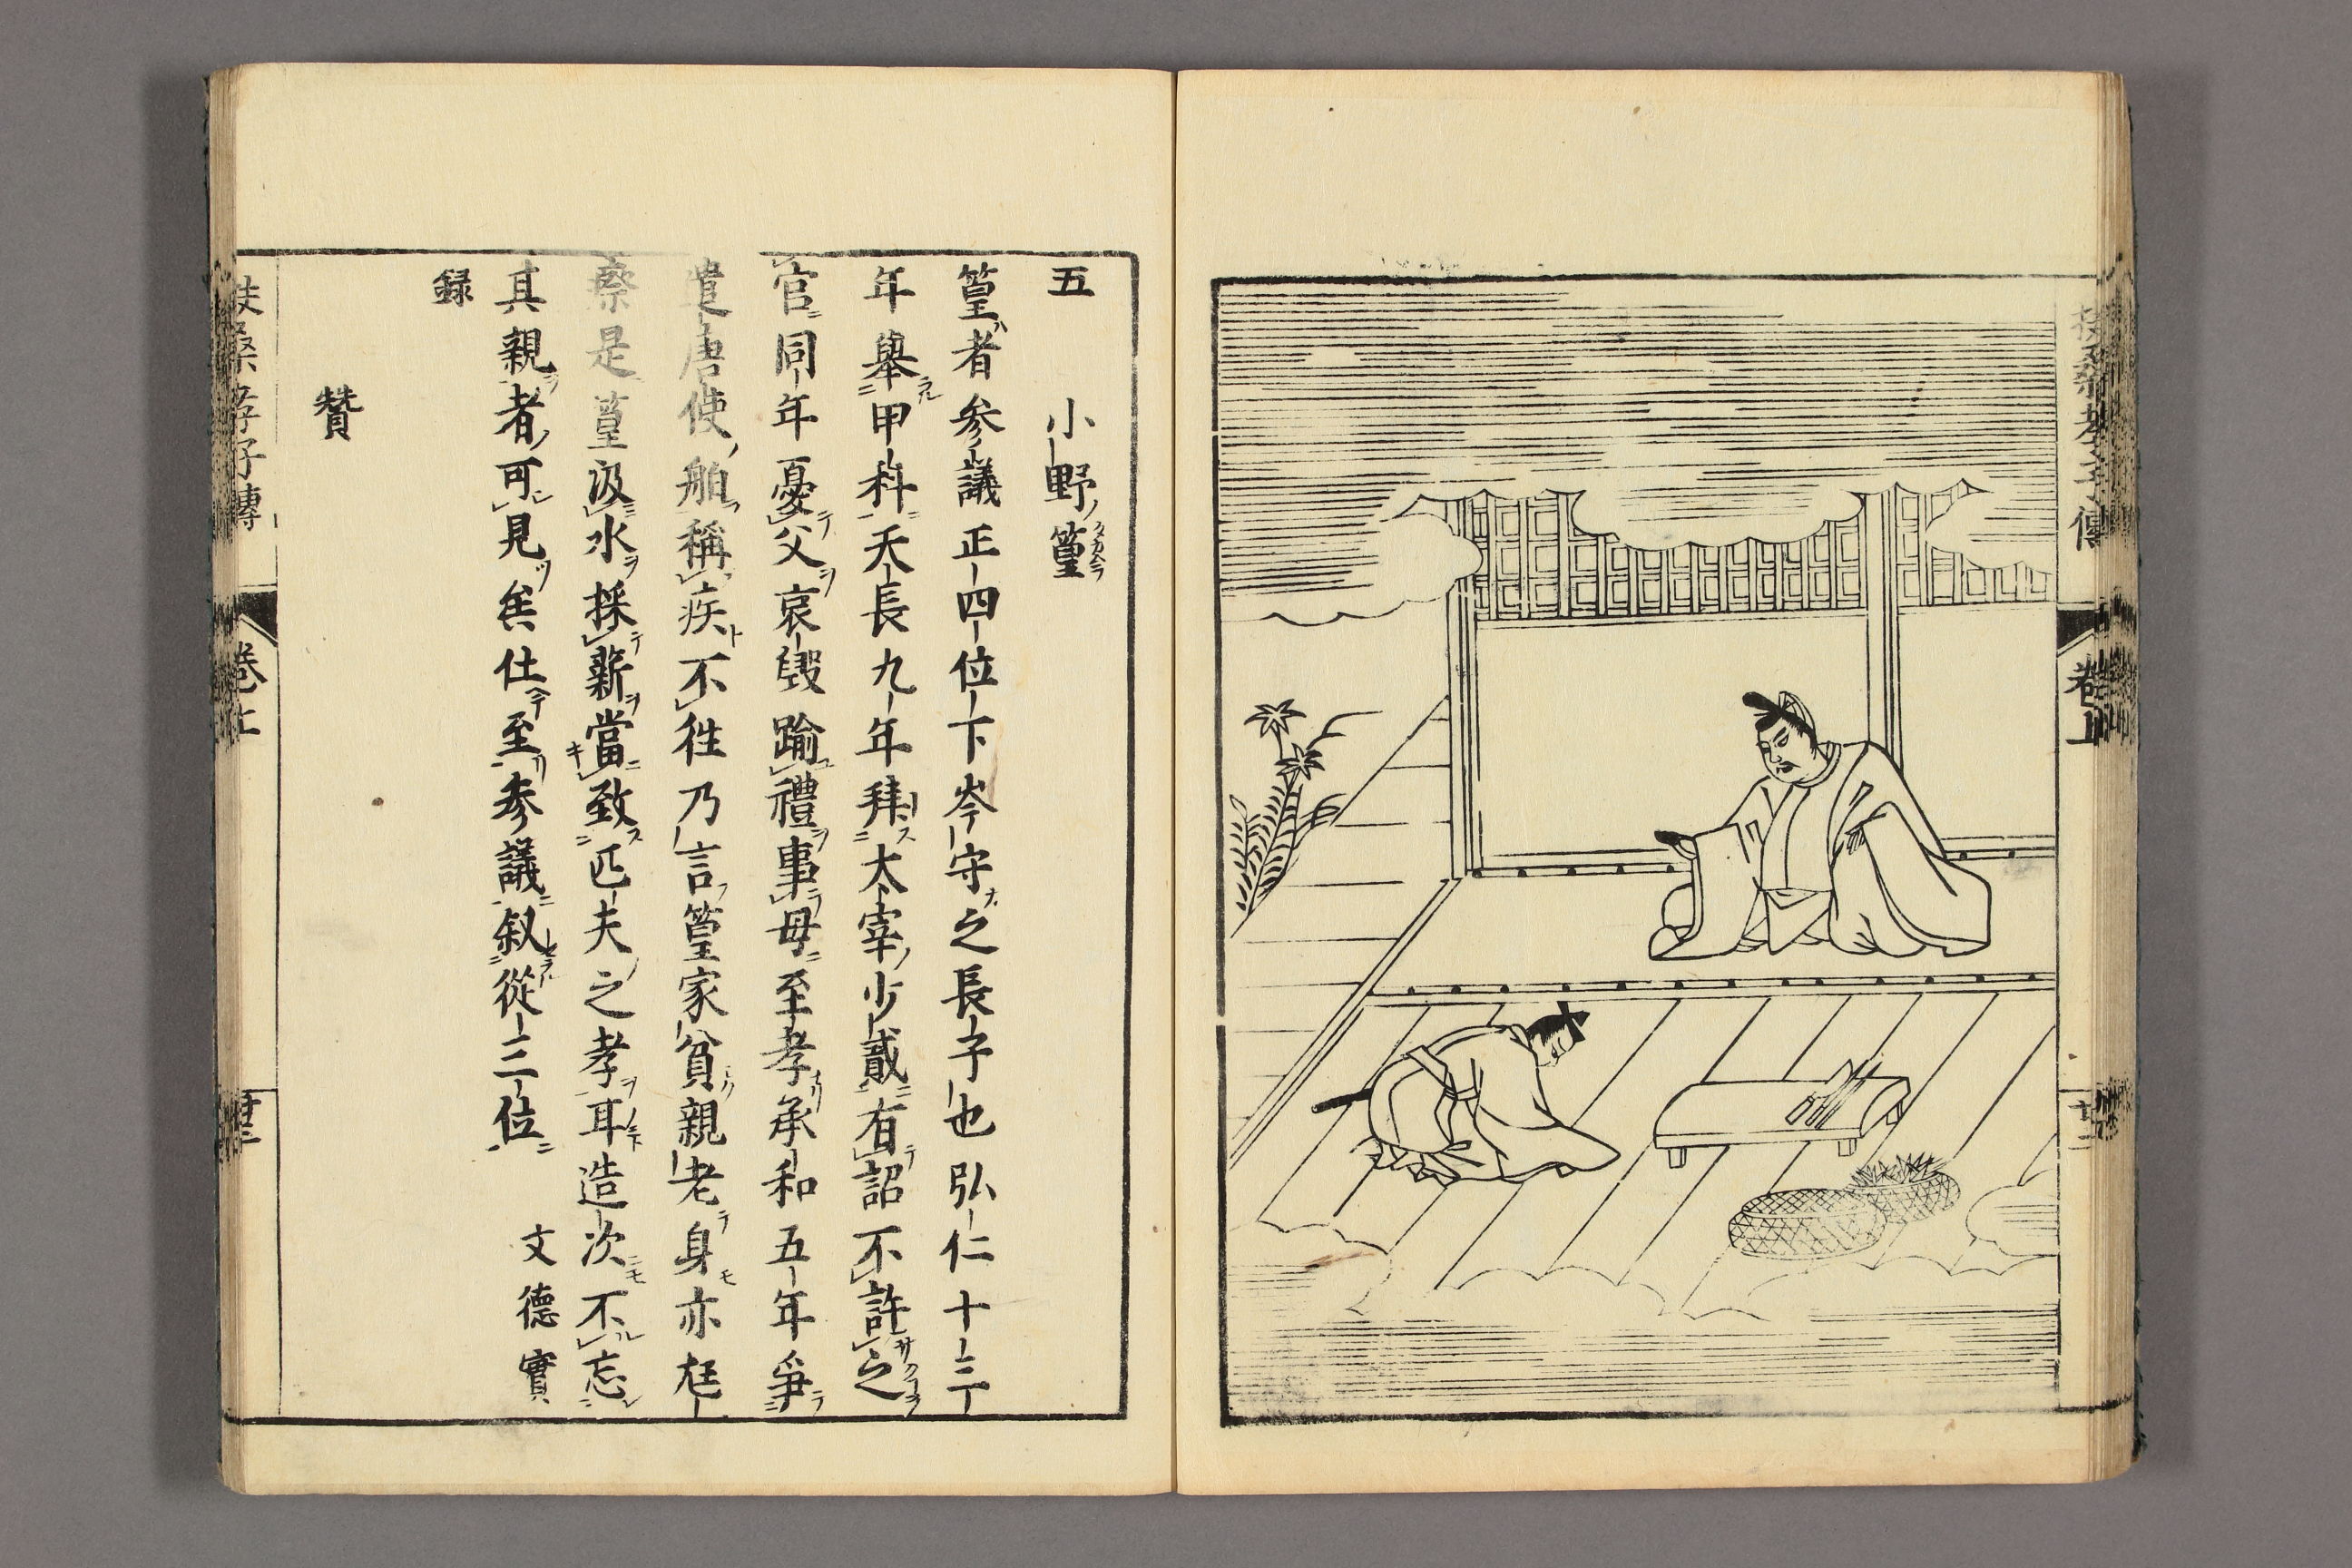 扶桑孝子傳
卷上
五 小野篁
篁者参議正四位下岑守之長子也弘仁十三
年舉甲科天長九年拜太宰少貳有詔不許之
官同年憂父哀毀踰禮事母至孝承和五年爭
遣唐使舶稱疾不往乃言篁家貧親老身亦尪
瘵是篁汲水採薪當致匹夫之孝耳造次不忘
其親者可見矣仕至参議叙從三位 文德實
録
贊
扶桑孝子傳
卷上